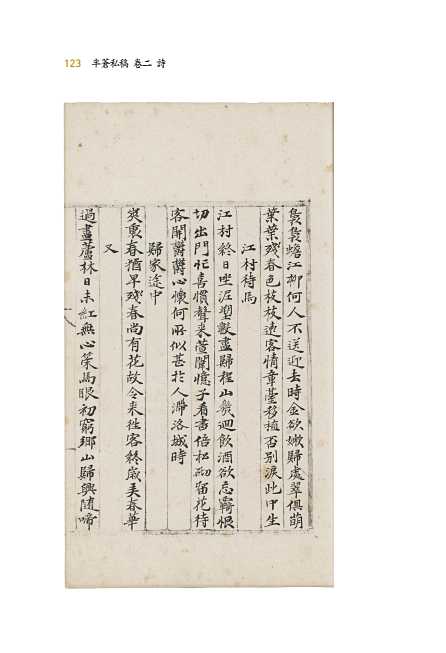 123 半蒼私稿 卷二 詩
裊裊蟾江柳何人不送迎去時金欲嫩歸處翠俱萌
葉葉殘春色枝枝遠客情章臺移植否別淚此中生
江村待馬
江村終日坐泥塑獸盡歸程山幾迴飲酒欲忘羈恨
切出門忙喜慣聲來萱闌憶子看書倍松砌留花待
客開鬱鬱心懷何所似甚於人滯洛城時
歸家途中
夾東春猶早殘春尚有花故令來往客終歲美春華
又
過盡蘆林日未紅無心策馬眼初窮鄉山歸興隨啼